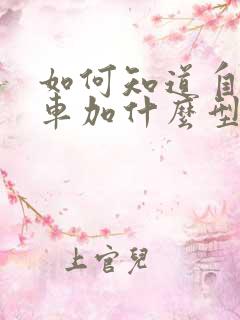 如何知道自
車加什麼型
上官兒